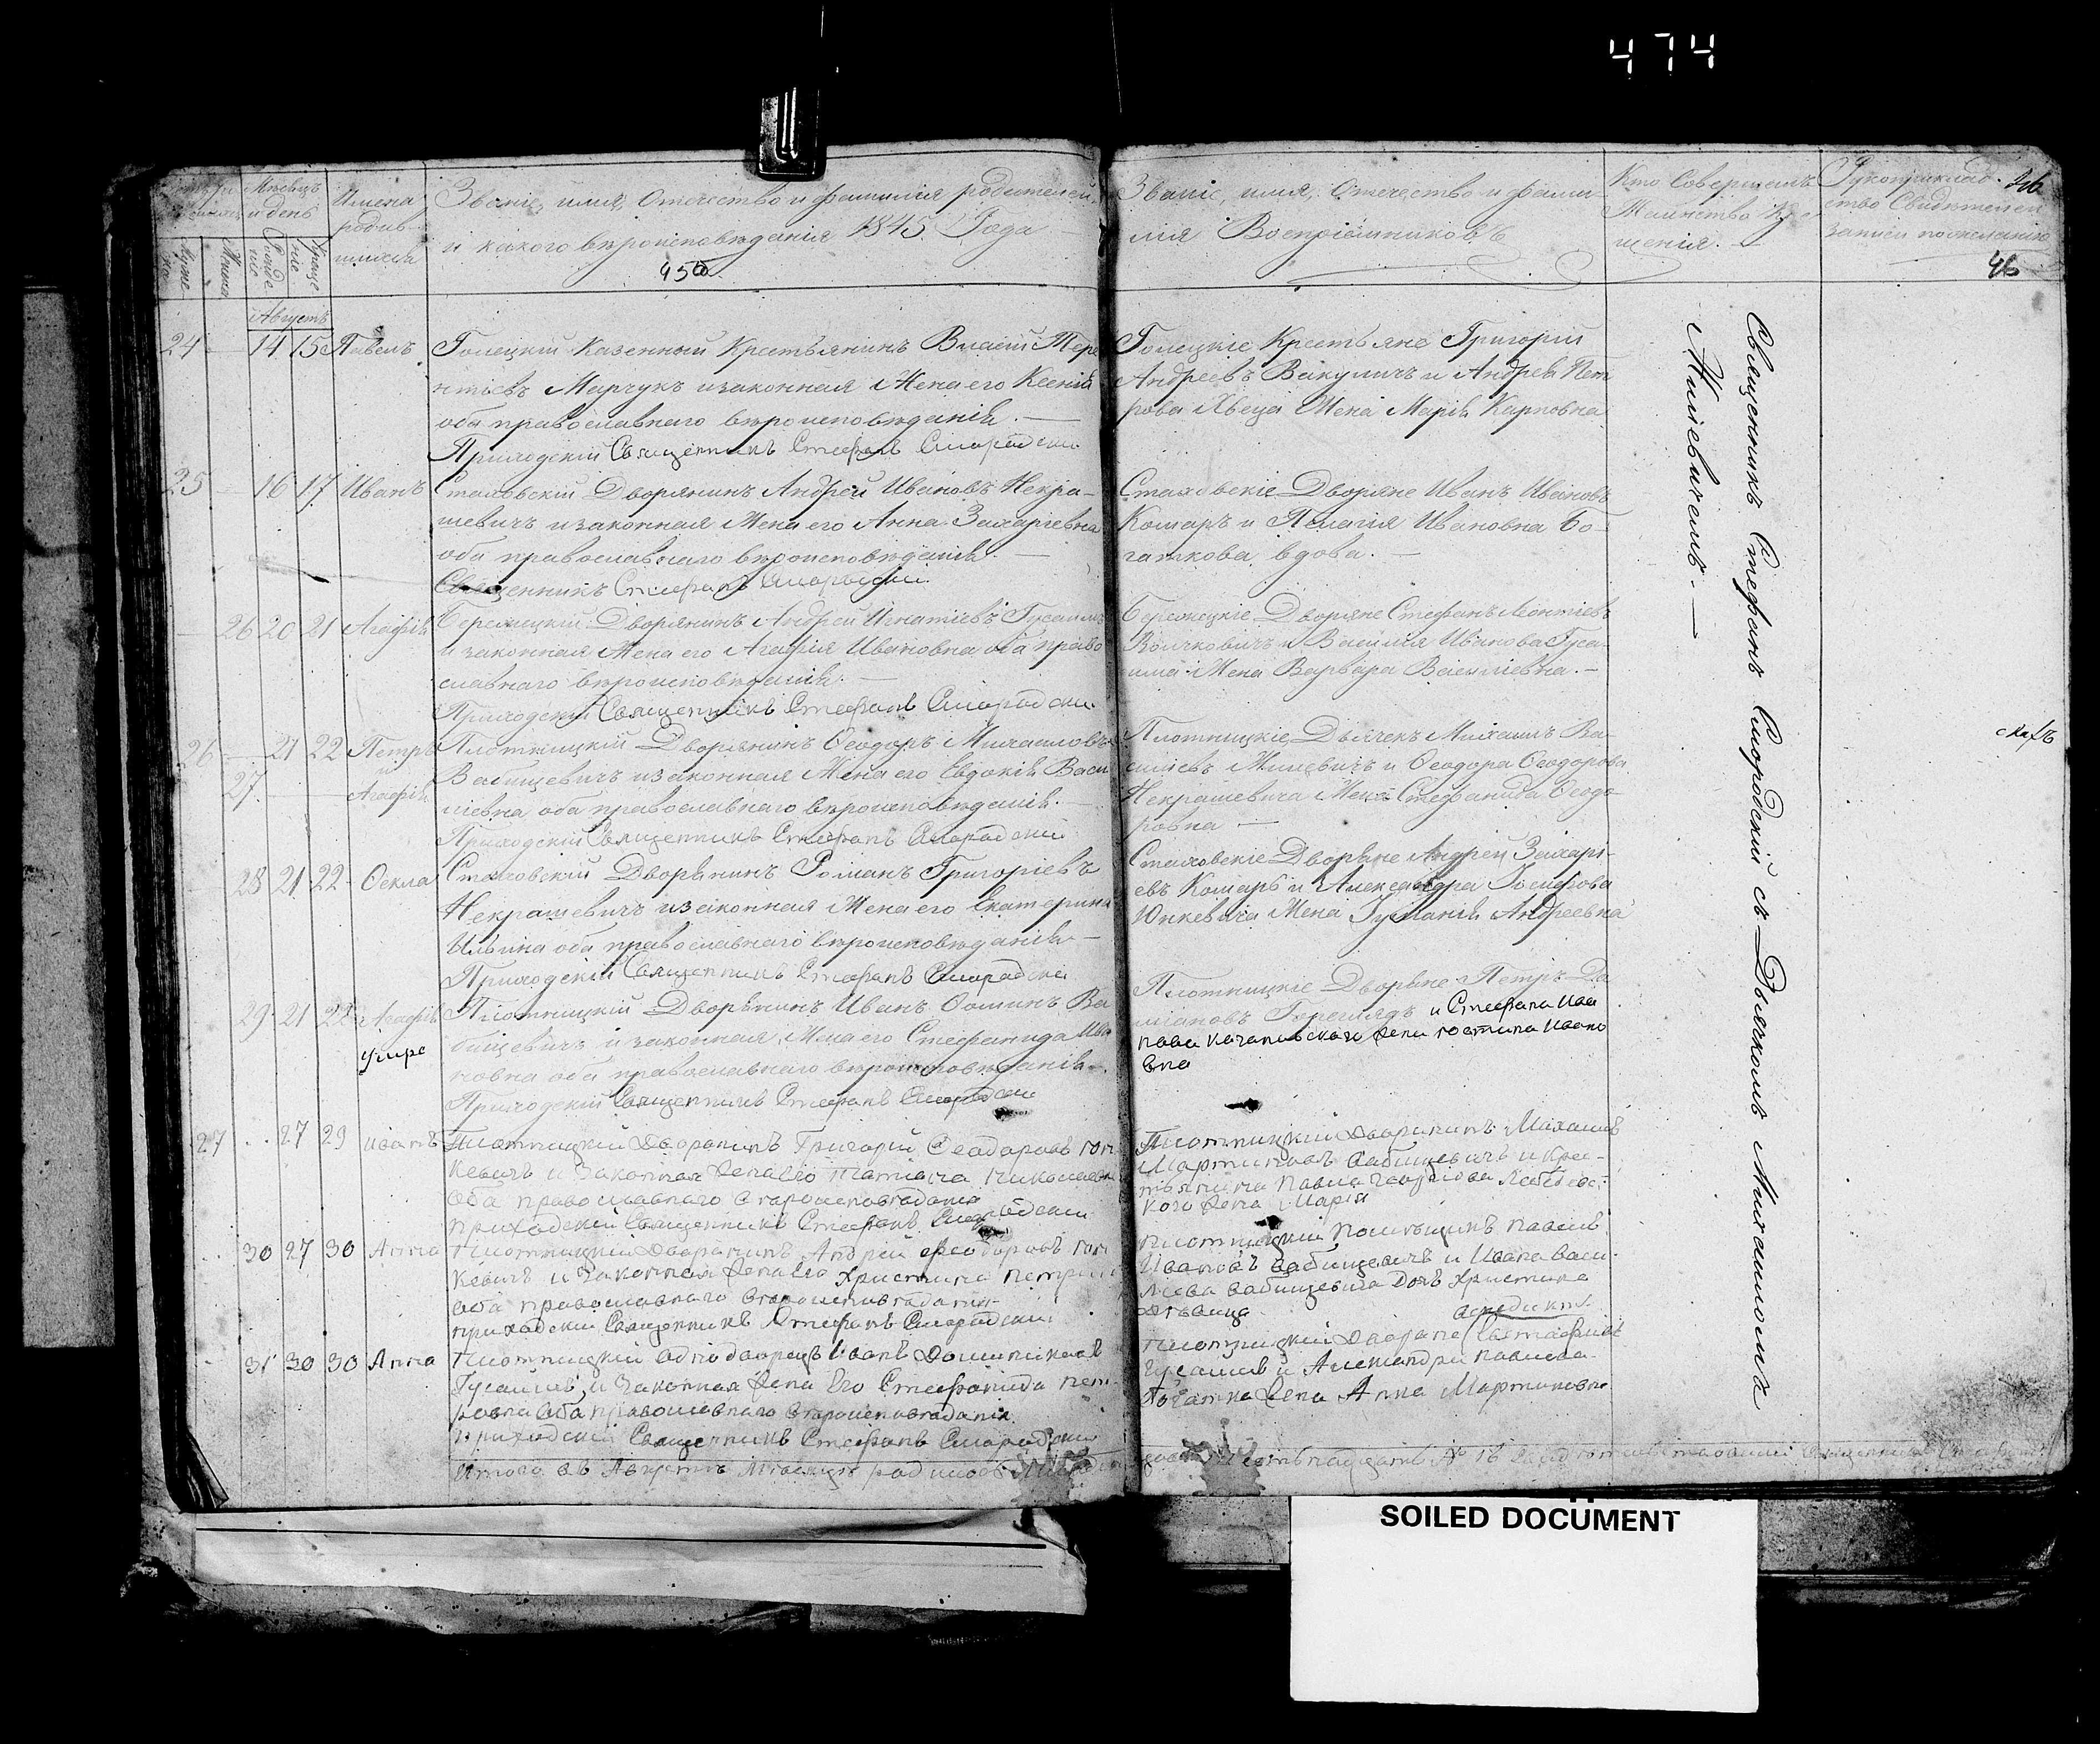 474
Мѣсяцъ
и день
Имена
родив-
шихся
Званіе, имя, отечество и фамилія родителей,
и какого вѣроисповѣданія 1845 Года
450
Званіе, имя, отечество и фами-
лія Воспріемниковъ
Кто Совершалъ
Таинство Кре-
щенія.
Рукоприклад-
ство Свидѣтелей
записи по желанію
46
Августъ
24 14 15 Павелъ
Голецкій Казенный Крестьянинъ Власій Тере
нтіевъ Марчукъ и законная Жена его Ксенія
оба православнаго вѣроисповѣданія. —
Приходскій Священникъ Стефанъ Смородскій
Голецкіе Крестьяне Григорій
Андреевъ Вакуличъ и Андрея Пет
рова Швеца Жена Марія Карповна
25 16 17 Иванъ
Стаховскій Дворянинъ Андрей Ивановъ Некра-
шевичъ и законная Жена его Анна Захаріевна
оба православнаго вѣроисповѣданія. —
Священникъ Стефанъ Смородскій
Стаховскіе Дворяне Иванъ Ивановъ
Комаръ и Пелагія Ивановна Бо-
гаткова, вдова. —
26 20 21 Агафія
Бережецкій Дворянинъ Андрей Игнатіевъ Гусаимъ
и законная Жена его Агафія Ивановна оба право
славнаго вѣроисповѣданія. —
Приходскій Священникъ Стефанъ Смородскій
Бережецкіе Дворяне Стефанъ Леонтіевъ
Волчковичъ и Василія Иванова Гуса-
има Жена Варвара Васильевна. —
26 21 22 Петръ
27. и Агафія
Плотницкій Дворянинъ Ѳеодоръ Михаиловъ
Вабищевичъ и законная Жена его Евдокія Васи
ліевна оба православнаго вѣроисповѣданія. —
Приходскій Священникъ Стефанъ Смородскій
Плотницкіе Дьячекъ Михаилъ Ва-
силіевъ Жилевичъ и Ѳеодора Ѳеодорова
Некрашевича Жена Стефанида Ѳеодо-
ровна —
28 21 22 Ѳекла
Стаховскій Дворянинъ Романъ Григоріевъ
Некрашевичъ и законная Жена его Екатерина
Ильина оба православнаго вѣроисповѣданія —
Приходскій Священникъ Стефанъ Смородскій
Стаховскіе Дворяне Андрей Захарі-
евъ Комаръ и Александра Іосифова
Юнкевича Жена Іуліанія Андреевна
29 21 22 Агафія
умре
Плотницкій Дворянинъ Иванъ Ѳоминъ Ва
бищевичъ и законная Жена его Стефанида Ива
новна оба православнаго вѣроисповѣданія.
Приходскій Священникъ Стефанъ Смородскій
Плотницкіе Дворяне Петръ Да
міановъ и Стефана Ива
вна
27 27 29 иванъ
Плотницкій Дворянинъ Григорій Ѳеодоровъ
кевичъ и Законная Жена Его Татіана Николаевна
Оба православнаго вѣроисповѣданія
приходскій Священникъ Стефанъ Смородскій
Плотницкій Дворянинъ Михаилъ
Мартиновъ Вабищевичъ и Крес-
тьянина Павла Лебедевс-
кого Жена Марія
30 27 30 Анна
Плотницкій Дворянинъ Андрей Ѳеодоровъ
кевичъ и Законная Жена Его Христина
оба православнаго вѣроисповѣданія
приходскій Священникъ Стефанъ Смородскій
Плотницкій Помѣщикъ Павелъ
Ивановъ Вабищевичъ и Ивана Васи-
лиева Вабищевича Дочь Христина
дѣвица
31 30 30 Анна
Плотницкій Однодворецъ Иванъ Доминиковъ
Гусаимъ, и Законная Жена Его Стефанида пет-
ровна Оба православнаго вѣроисповѣданія
приходскій Священникъ Стефанъ Смородскій
Плотницкій Дворяне
Гусаимъ и Александра Павлова
Богатка Жена Анна Мартиновна
Итого въ Августѣ Мѣсяцѣ родилось
Священникъ Стефанъ Смородскій съ Дьячкомъ Михаиломъ
Жилевичемъ. —
SOILED DOCUMENT